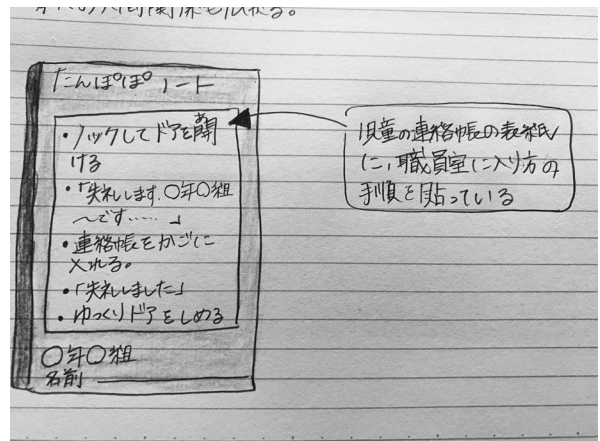 人間関係も広がる。
「たんぽぽノート
・ノックしてドアを開
ける
・「失礼します。〇年〇組
〜です……」
・連絡帳をかごに
入れる。
・「失礼しました」
・ゆっくりドアをしめる
〇年〇組
名前
児童の連絡帳の表紙
に、職員室に入り方の
手順を貼っている